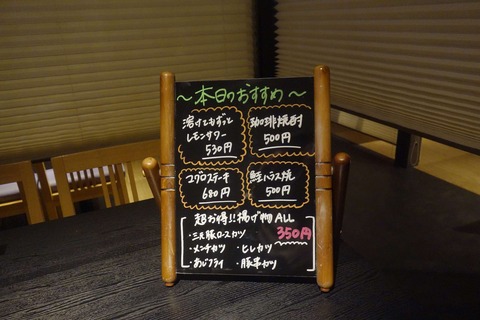 ～本日のおすすめ～
溶けてもずっと
レモンサワー
530円
珈琲焼酎
500円
マグロステーキ
680円
鮭ハラス焼
500円
超お得!!揚げ物ALL
350円
・三元豚ロースカツ
・メンチカツ ・ヒレカツ
・あじフライ ・豚串カツ